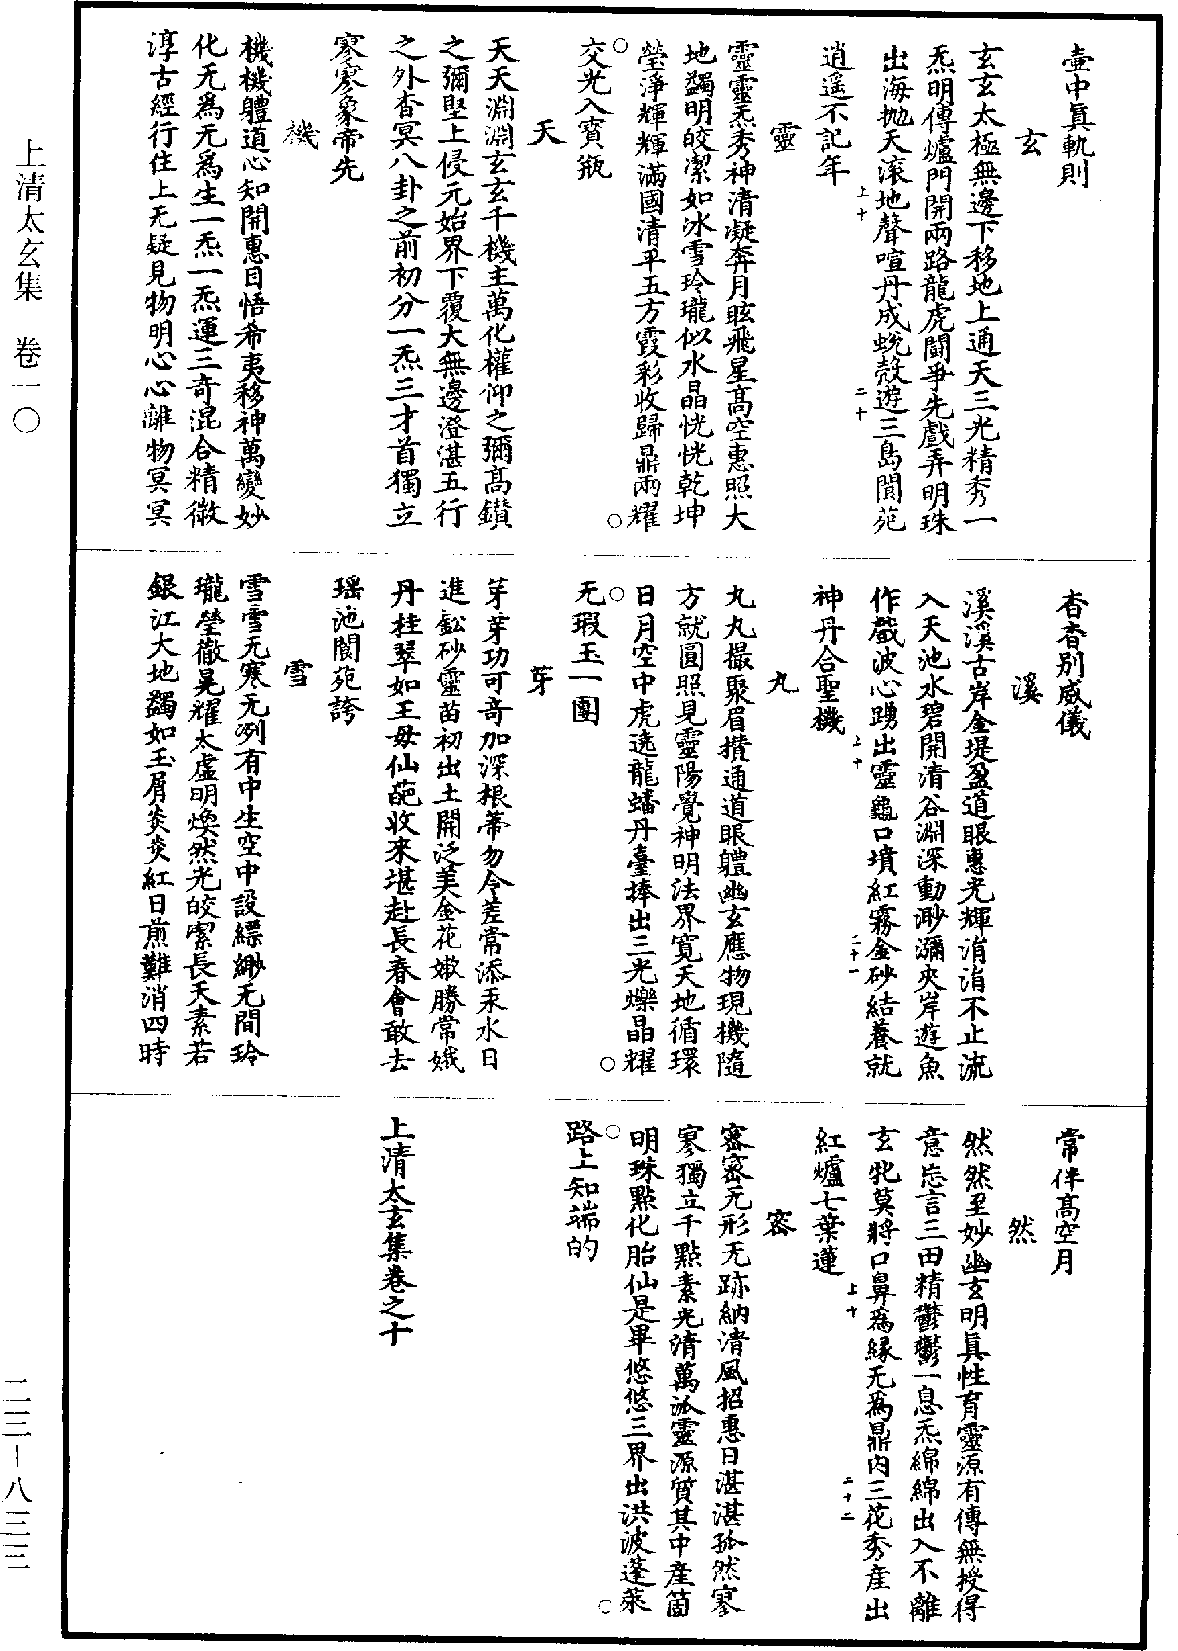 上清太玄集　卷一〇
二三—八三三
壺中真軌則
玄
玄玄太極無邊下移地上通天三光精秀一
炁明傳爐門開兩路龍虎鬬爭先戲弄明珠
出海拋天滚地聲喧丹成蛻殼遊三島閬苑
逍遥不記年
上十
二十
靈
靈靈炁秀神清凝奔月眩飛星高空惠照大
地蠲明皎潔如冰雪玲瓏似水晶恍恍乾坤
瑩淨輝輝滿國清平五方霞彩收歸鼎兩耀
交光入寶瓶
天
天天淵淵玄玄千機主萬化權仰之彌高鑽
之彌堅上侵元始界下覆大無邊澄湛五行
之外杳冥八卦之前初分一炁三才首獨立
寥寥象帝先
機
機機體道心知開惠目悟希夷移神萬變妙
化无為无為生一炁一炁運三奇混合精微
淳古經行住上无疑見物明心心離物冥冥
杳杳別威儀
溪
溪溪古岸金堤盈道眼惠光輝涓涓不止流
入天池水碧開清谷淵深動渺瀰夾岸遊魚
作戲波心踴出靈龜口墳紅霧金砂結養就
神丹合聖機
上十
二十一
丸
丸丸撮聚眉攢通道眼體幽玄應物現機隨
方就圓照見靈陽覺神明法界寬天地循環
日月空中虎遶龍蟠丹臺捧出三光爍晶耀
无瑕玉一團
芽
芽芽功可奇加深根蒂勿令差常添汞水日
進鈆砂靈苗初出土開泛美金花嫩勝常娥
丹桂翠如王母仙葩收來堪赴長春會敢去
瑶池閬苑誇
雪
雪雪无寒无冽有中生空中設縹緲无間玲
瓏瑩徹晃耀太虛明煥然光皎潔長天素若
銀江大地蠲如玉屑炎炎紅日煎難消四時
常伴高空月
然
然然至妙幽玄明真性育靈源有傳無授得
意忘言三田精鬱鬱一息炁綿綿出入不離
玄牝莫將口鼻為緣无為鼎內三花秀產出
紅爐七葉蓮
上十
二十二
密
密密无形无跡納清風招惠日湛湛孤然寥
寥獨立千點素光清萬派靈源質其中產箇
明珠點化胎仙是畢悠悠三界出洪波蓬萊
路上知端的
上清太玄集卷之十